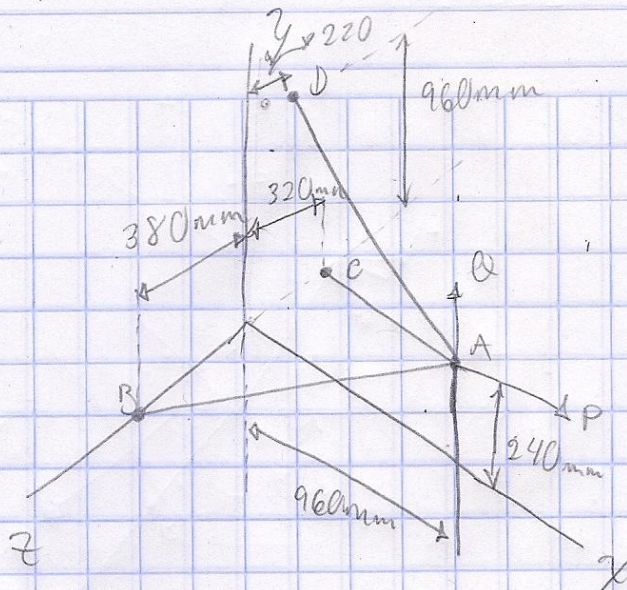 y
220
D
960mm
320mm
380mm
C
Q
A
B
P
240mm
960mm
Z
X